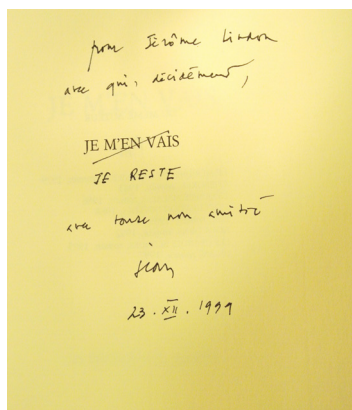 pour Jérôme Lindon
avec qui, décidément,
JE M'EN VAIS
JE RESTE
avec toute mon amitié
Jean
23 . XII . 1999